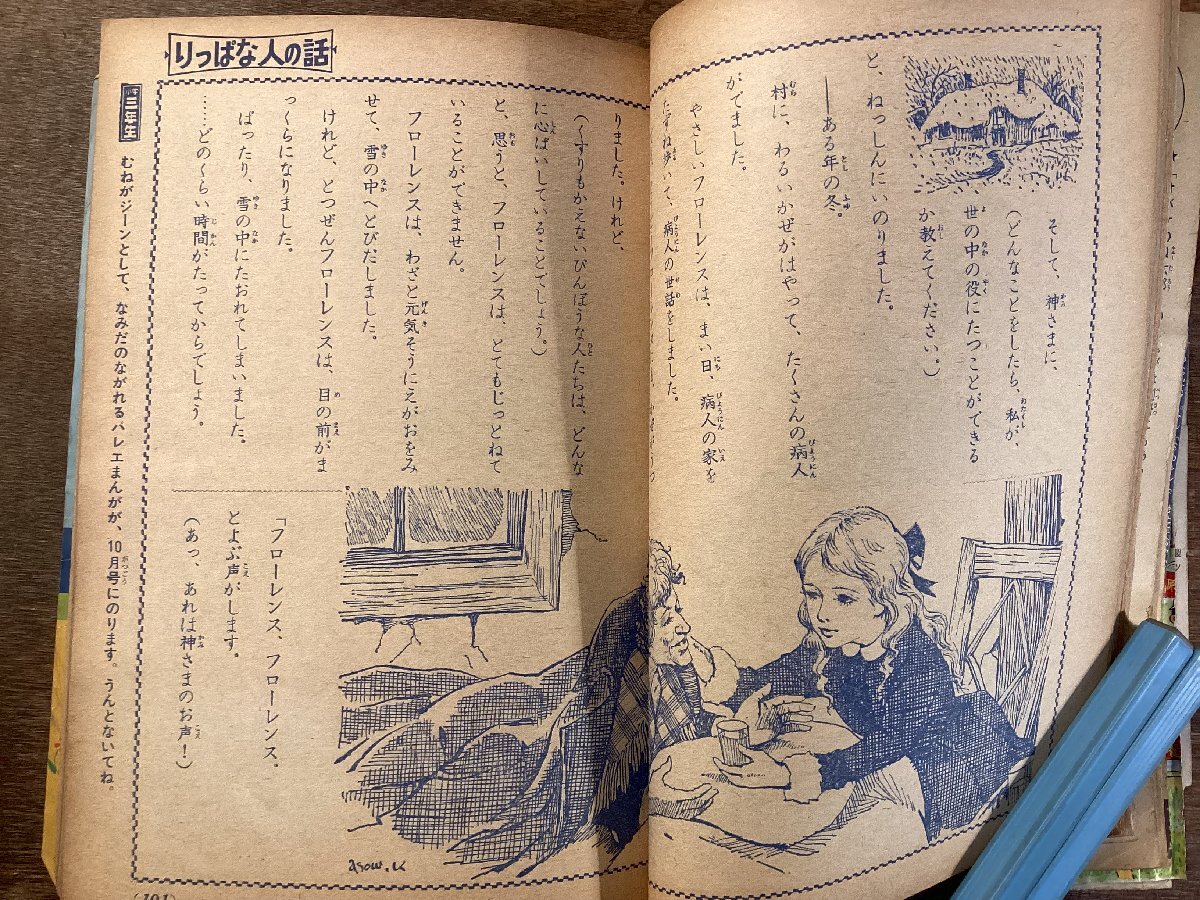 りっぱな人の話
そして、神さまに、
(どんなことをしたら、私が、
世の中の役にたつことができる
か教えてください。)
と、ねっしんにいのりました。
――ある年の冬。
村に、わるいかぜがはやって、たくさんの病人
がでました。
やさしいフローレンスは、まい日、病人の家を
たずね歩いて、病人の世話をしました。
りました。けれど、
(くすりもかえないびんぼうな人たちは、どんな
に心ぱいしていることでしょう。)
と、思うと、フローレンスは、とてもじっとねて
いることができません。
フローレンスは、わざと元気そうにえがおをみ
せて、雪の中へとびだしました。
けれど、とつぜんフローレンスは、目の前がま
っくらになりました。
ばったり、雪の中にたおれてしまいました。
……どのくらい時間がたってからでしょう。
「フローレンス、フローレンス。
とよぶ声がします。
(あっ、あれは神さまのお声!)
小学三年生 むねがジーンとして、なみだのながれるバレエまんがが、10月号にのります。うんとないてね。
asow.K